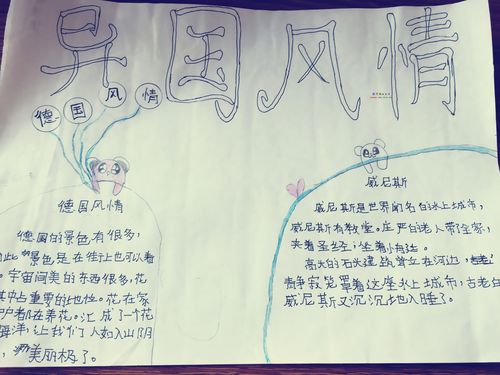 异国风情
德国风情
德国风情
德国的景色有很多,
景色是在街上也可以看
宇宙间美的东西很多,花
其中占重要的地位。花在家
户都在养花。汇成了一个花
海洋,让我们人如入山阴
,美丽极了。
威尼斯
威尼斯是世界闻名的水上城市,
威尼斯有教堂。庄严的老人带了全家,
夹着圣经,坐着小舟去。
高大的石头建筑耸立在河边,
静寂笼罩着这座水上城市,古老的
威尼斯又沉沉地入睡了。